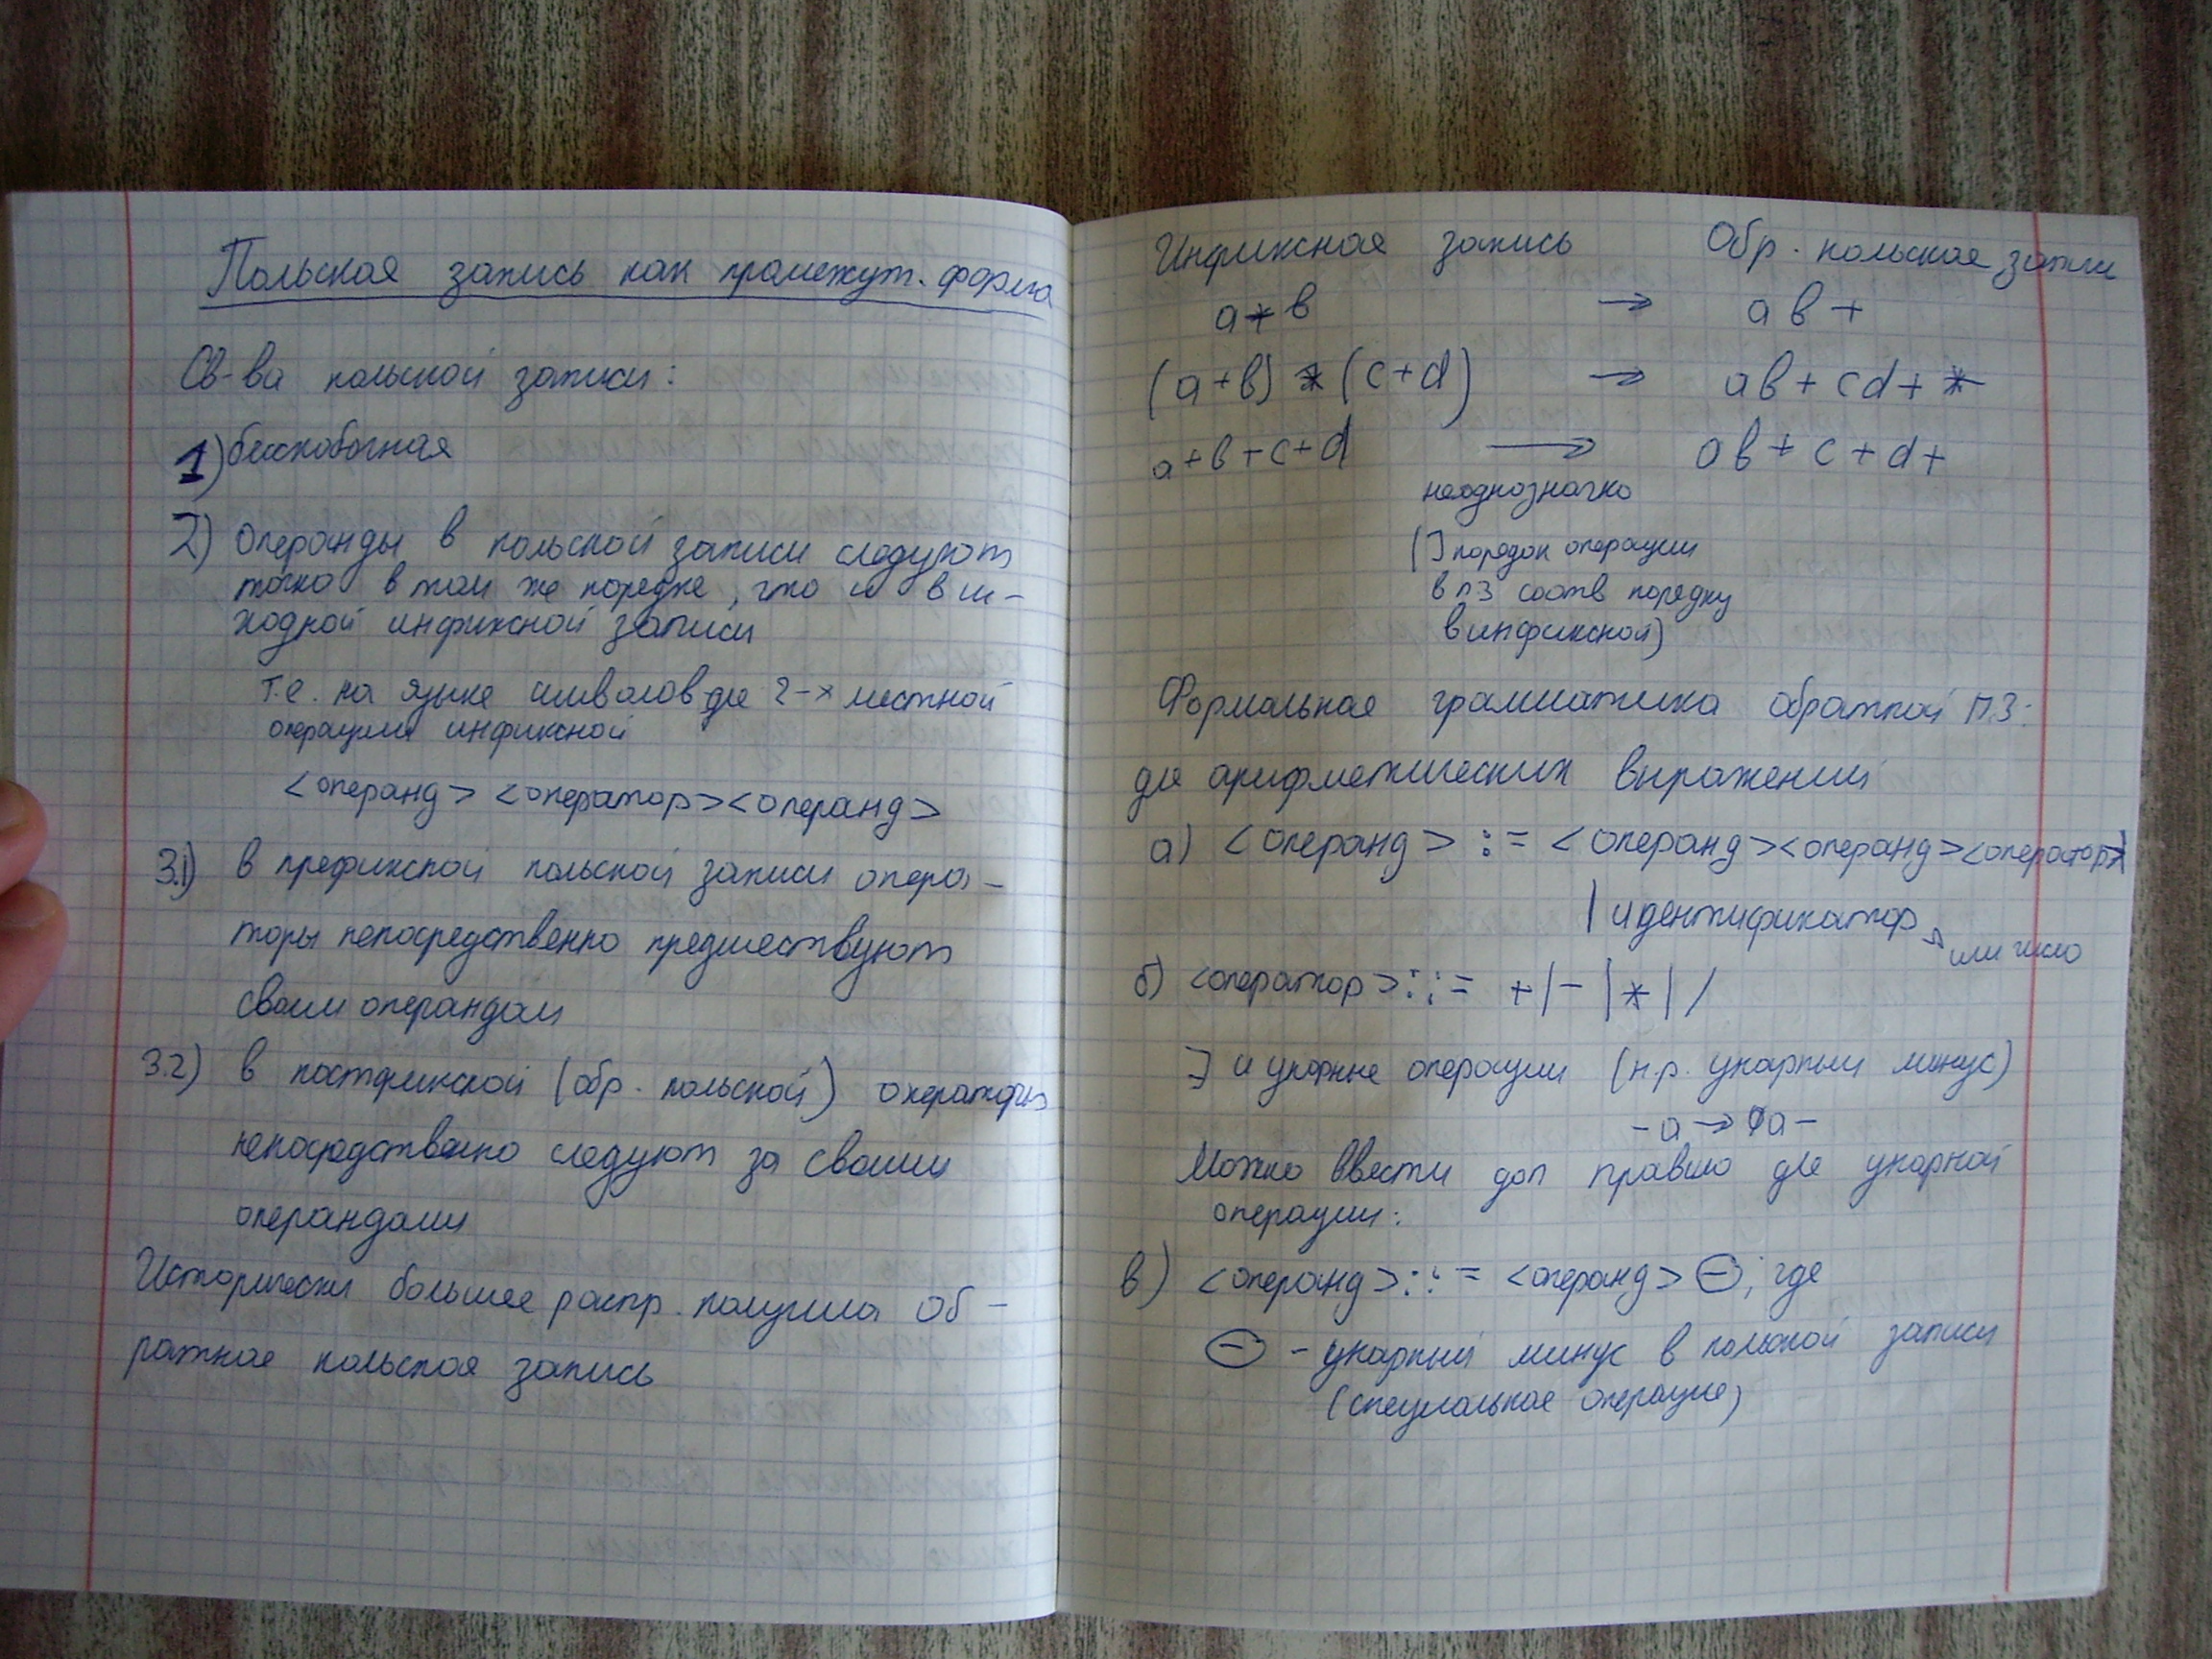 Польская запись как промежут. форма
Св-ва польской записи:
1) бесскобочная
2) операнды в польской записи следуют
точно в том же порядке, что и в ис-
ходной инфиксной записи
т.е. на языке символов для 2-х местной
операции инфиксной
<операнд> <оператор><операнд>
3.1) в префиксной польской записи опера-
торы непосредственно предшествуют
своим операндам
3.2) в постфиксной (обр. польской) операторы
непосредственно следуют за своими
операндами
Исторически большее распр. получила об-
ратная польская запись
Инфиксная запись Обр. польская запись
a+b → ab+
(a+b) * (c+d) → ab+cd+*
a+b+c+d → ab+c+d+
неоднозначно
(] порядок операции
в пз соотв порядку
в инфиксной)
Формальная грамматика обратной П.З:
для арифметических выражений
а) <операнд> := <операнд><операнд><оператор>
| идентификатор
или число
б) <оператор>::= +|-|*|/
∃ и унарные операции (н.р. унарный минус)
-a → 0a-
Можно ввести доп правило для унарной
операции:
в) <операнд>::= <операнд> ⊖, где
⊖ - унарный минус в польской записи
(специальная операция)